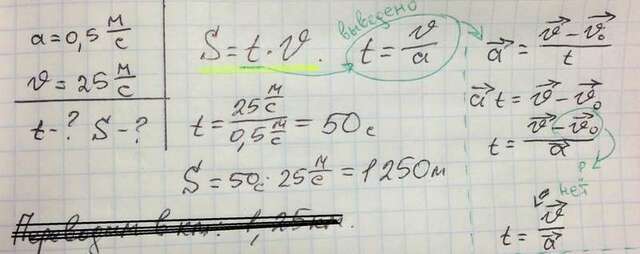 a = 0,5 м/с
υ = 25 м/с
t - ? S - ?
выведено
S = t · υ. t = υ/a
t = 25 м/с / 0,5 м/с = 50 с
S = 50с · 25 м/с = 1250м
Переводим в км: 1,25 км.
a⃗ = (υ⃗ - υ⃗₀)/t
a⃗ t = υ⃗ - υ⃗₀
t = (υ⃗ - υ⃗₀)/a⃗
нет
t = υ⃗/a⃗